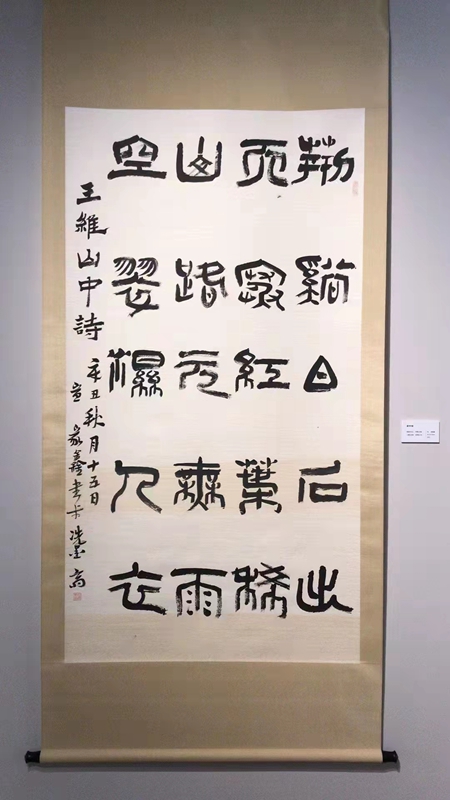 荆谿白石出
天寒紅葉稀
山路元無雨
空翠濕人衣
王維山中詩
辛丑秋月十五日
家鑫書於洗墨齋